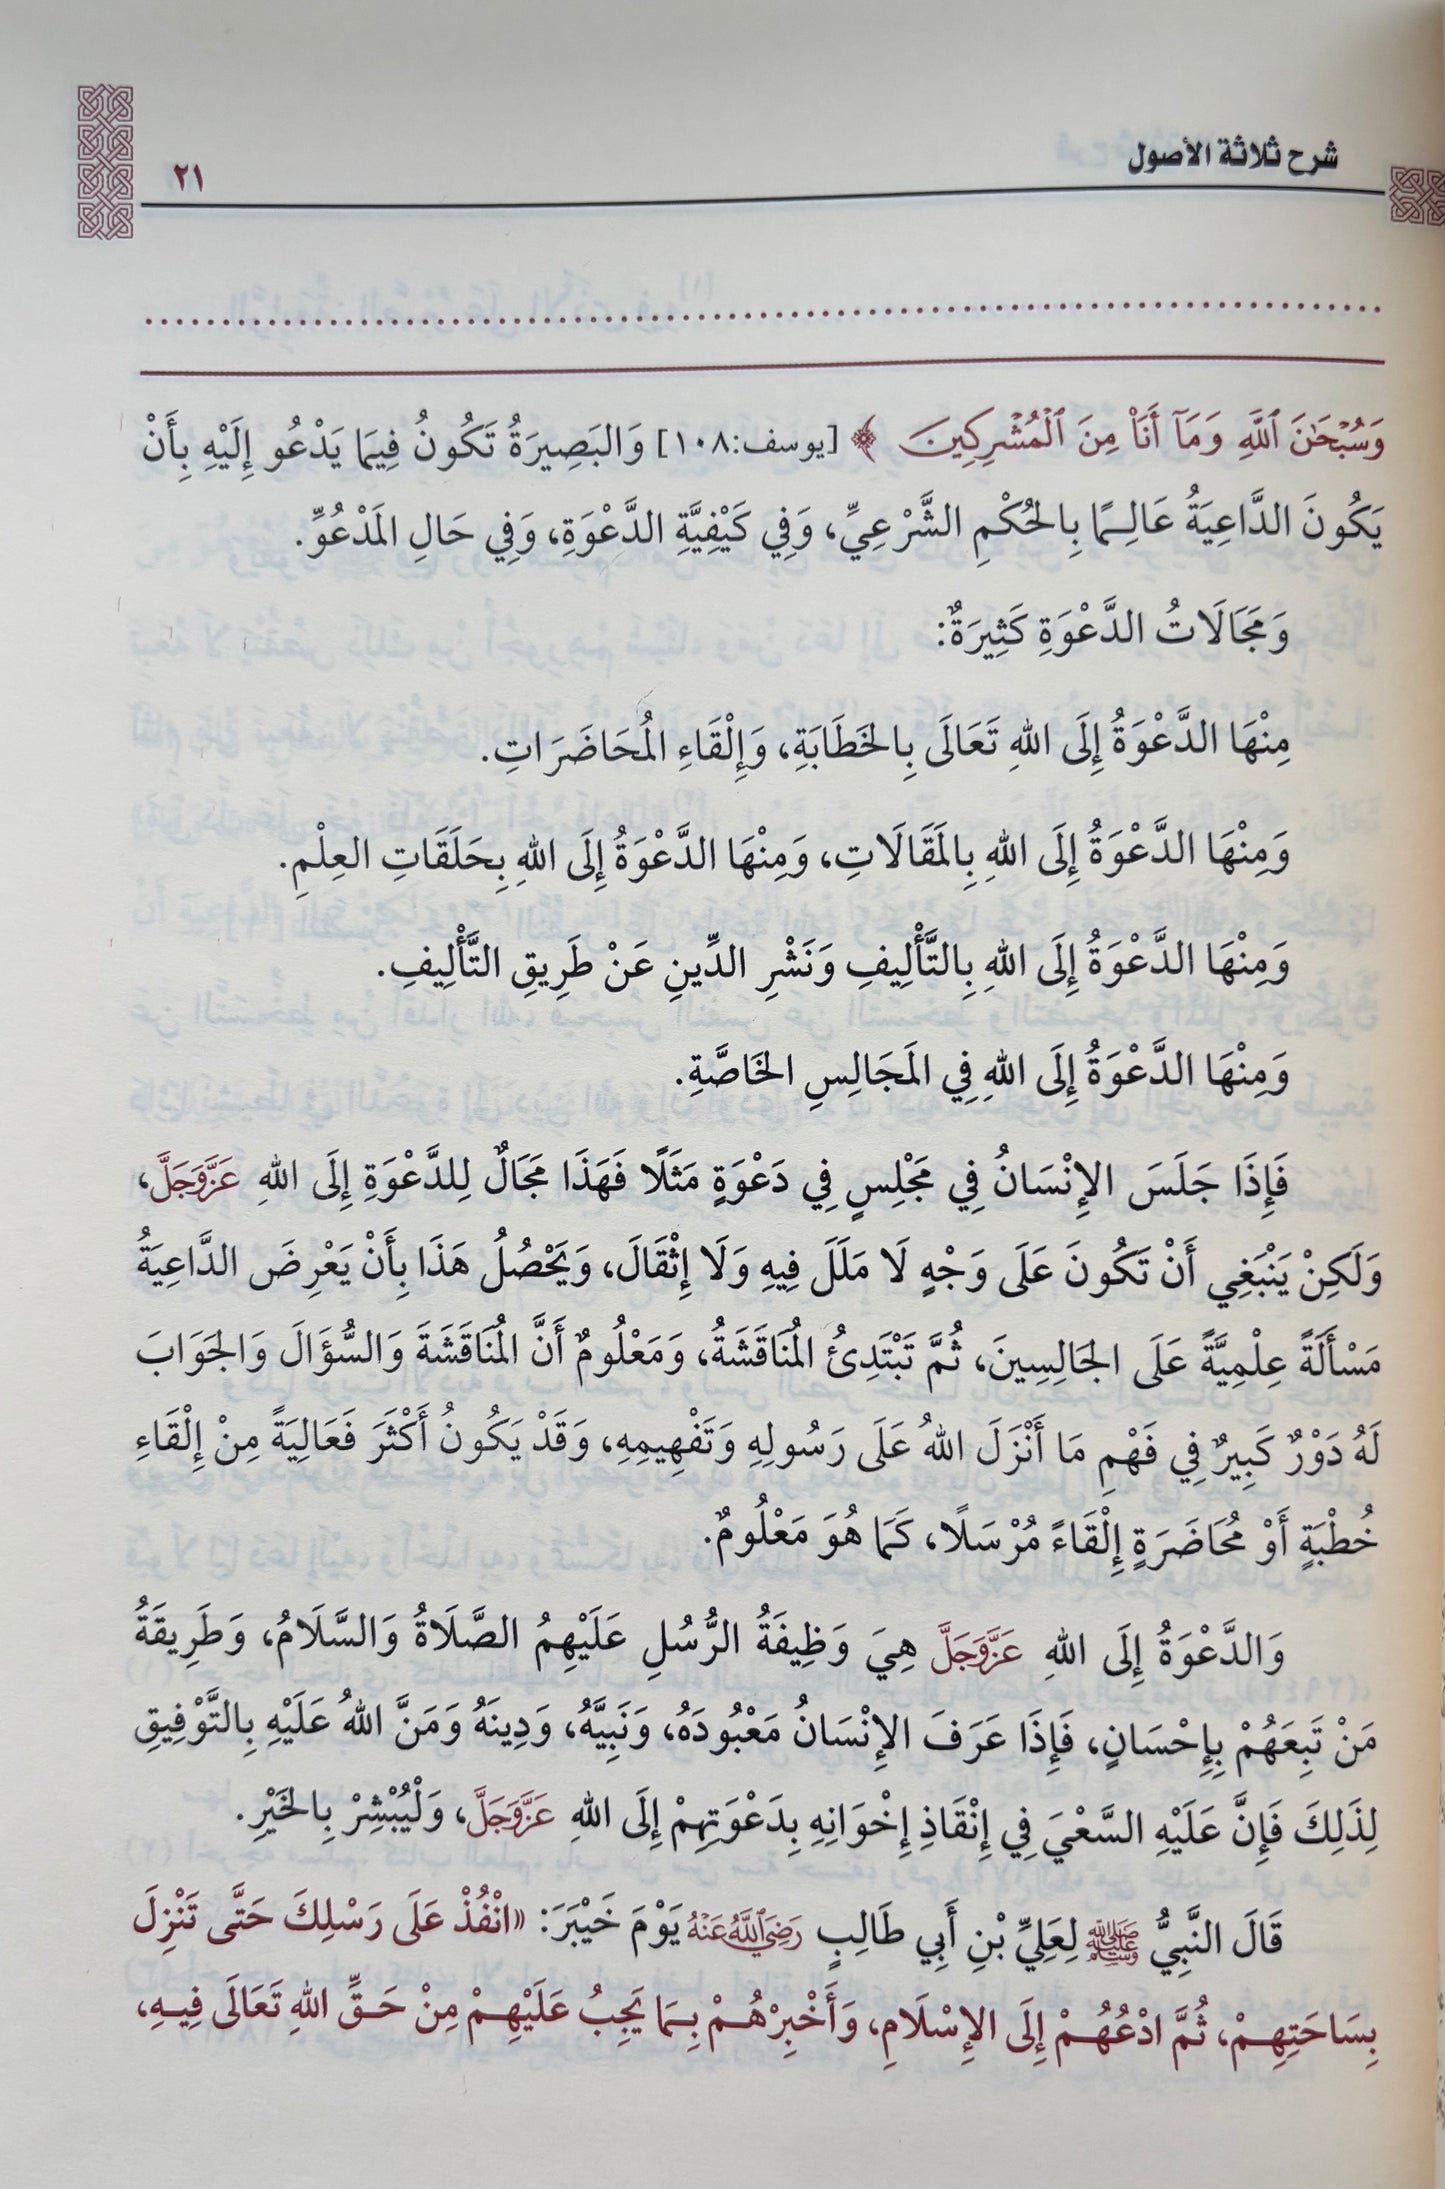 شرح ثلاثة الأصول
٢١
وَسُبْحَٰنَ ٱللَّهِ وَمَآ أَنَا۠ مِنَ ٱلْمُشْرِكِينَ ﴾ [يوسف:١٠٨] وَالبَصِيرَةُ تَكُونُ فِيمَا يَدْعُو إِلَيْهِ بِأَنْ
يَكُونَ الدَّاعِيَةُ عَالِـمًا بِالحُكْمِ الشَّرْعِيِّ، وَفِي كَيْفِيَّةِ الدَّعْوَةِ، وَفِي حَالِ المَدْعُوِّ.
وَمَجَالَاتُ الدَّعْوَةِ كَثِيرَةٌ:
مِنْهَا الدَّعْوَةُ إِلَى اللهِ تَعَالَى بِالخَطَابَةِ، وَإِلْقَاءِ المُحَاضَرَاتِ.
وَمِنْهَا الدَّعْوَةُ إِلَى اللهِ بِالمَقَالَاتِ، وَمِنْهَا الدَّعْوَةُ إِلَى اللهِ بِحَلَقَاتِ العِلْمِ.
وَمِنْهَا الدَّعْوَةُ إِلَى اللهِ بِالتَّأْلِيفِ وَنَشْرِ الدِّينِ عَنْ طَرِيقِ التَّأْلِيفِ.
وَمِنْهَا الدَّعْوَةُ إِلَى اللهِ فِي المَجَالِسِ الخَاصَّةِ.
فَإِذَا جَلَسَ الإِنْسَانُ فِي مَجْلِسٍ فِي دَعْوَةٍ مَثَلًا فَهَذَا مَجَالٌ لِلدَّعْوَةِ إِلَى اللهِ عَزَّوَجَلَّ،
وَلَكِنْ يَنْبَغِي أَنْ تَكُونَ عَلَى وَجْهٍ لَا مَلَلَ فِيهِ وَلَا إِثْقَالَ، وَيَحْصُلُ هَذَا بِأَنْ يَعْرِضَ الدَّاعِيَةُ
مَسْأَلَةً عِلْمِيَّةً عَلَى الجَالِسِينَ، ثُمَّ تَبْتَدِئُ المُنَاقَشَةُ، وَمَعْلُومٌ أَنَّ المُنَاقَشَةَ وَالسُّؤَالَ وَالجَوَابَ
لَهُ دَوْرٌ كَبِيرٌ فِي فَهْمِ مَا أَنْزَلَ اللهُ عَلَى رَسُولِهِ وَتَفْهِيمِهِ، وَقَدْ يَكُونُ أَكْثَرَ فَعَالِيَةً مِنْ إِلْقَاءِ
خُطْبَةٍ أَوْ مُحَاضَرَةٍ إِلْقَاءً مُرْسَلًا، كَمَا هُوَ مَعْلُومٌ.
وَالدَّعْوَةُ إِلَى اللهِ عَزَّوَجَلَّ هِيَ وَظِيفَةُ الرُّسُلِ عَلَيْهِمُ الصَّلَاةُ وَالسَّلَامُ، وَطَرِيقَةُ
مَنْ تَبِعَهُمْ بِإِحْسَانٍ، فَإِذَا عَرَفَ الإِنْسَانُ مَعْبُودَهُ، وَنَبِيَّهُ، وَدِينَهُ وَمَنَّ اللهُ عَلَيْهِ بِالتَّوْفِيقِ
لِذَلِكَ فَإِنَّ عَلَيْهِ السَّعْيَ فِي إِنْقَاذِ إِخْوَانِهِ بِدَعْوَتِهِمْ إِلَى اللهِ عَزَّوَجَلَّ، وَلْيُبْشِرْ بِالخَيْرِ.
قَالَ النَّبِيُّ ﷺ لِعَلِيِّ بْنِ أَبِي طَالِبٍ رَضِيَ ٱللَّهُ عَنْهُ يَوْمَ خَيْبَرَ: «انْفُذْ عَلَى رَسْلِكَ حَتَّى تَنْزِلَ
بِسَاحَتِهِمْ، ثُمَّ ادْعُهُمْ إِلَى الإِسْلَامِ، وَأَخْبِرْهُمْ بِمَا يَجِبُ عَلَيْهِمْ مِنْ حَقِّ اللهِ تَعَالَى فِيهِ،